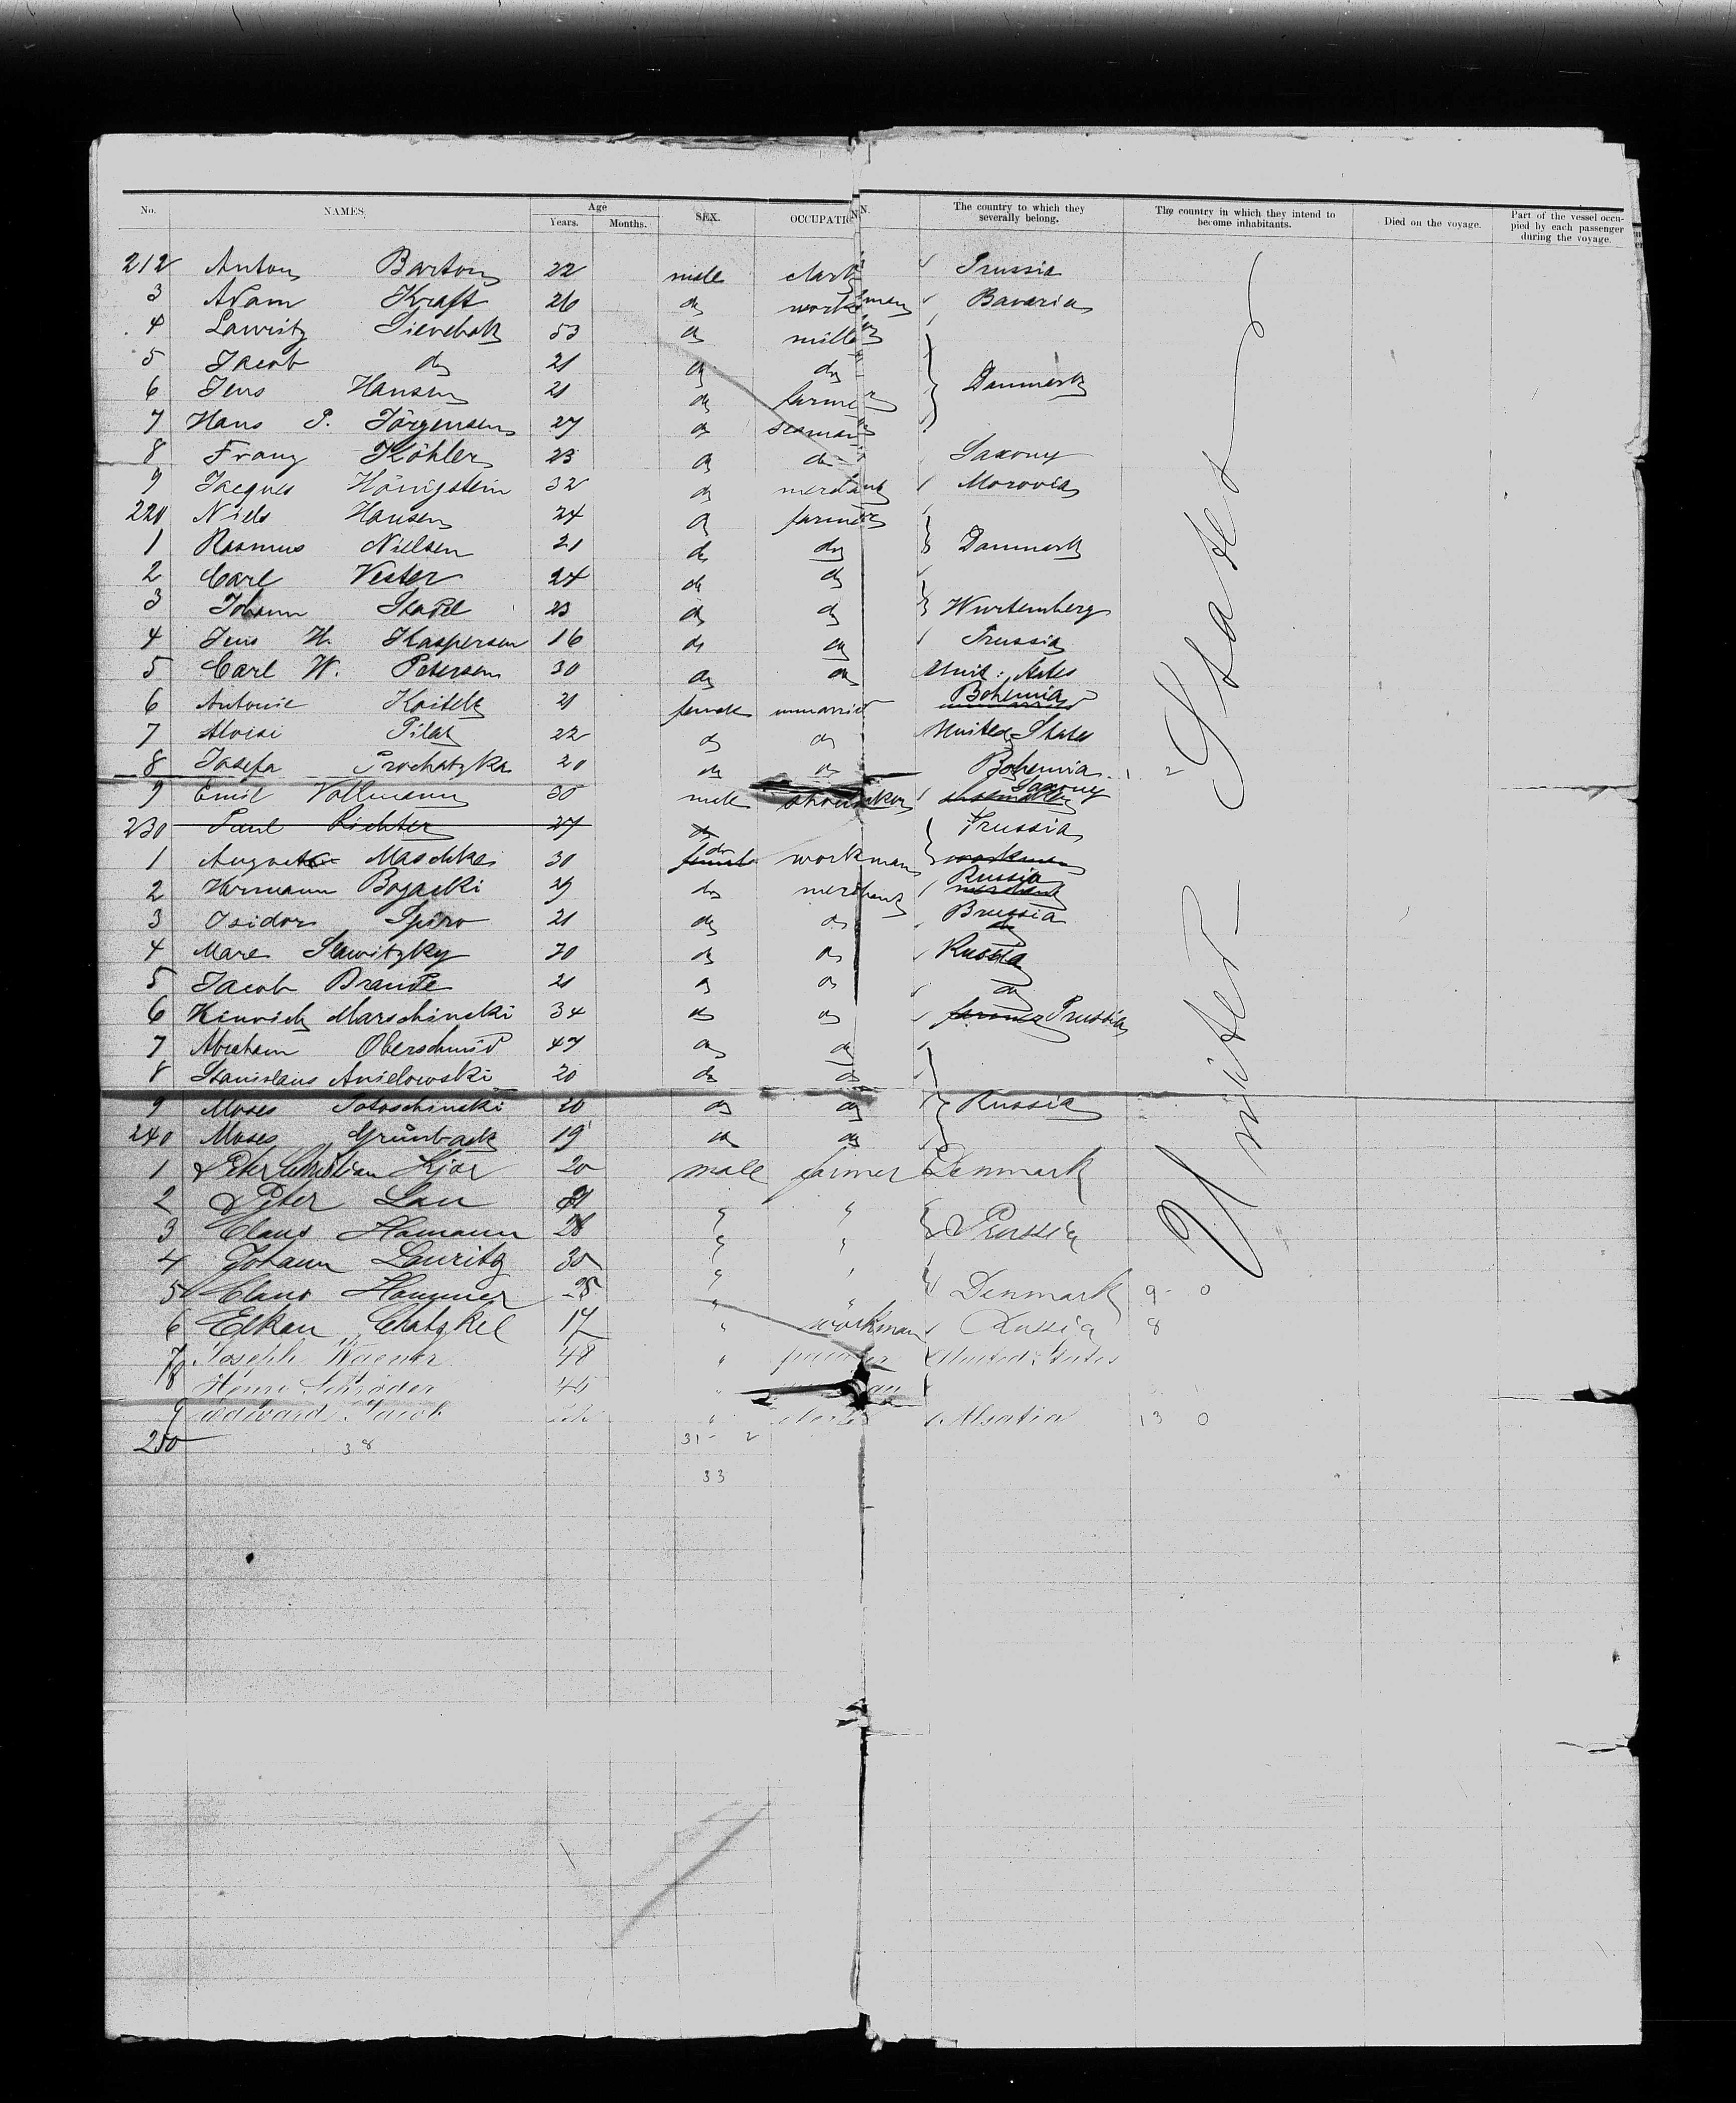 No. NAMES. Age SEX. OCCUPATION. The country to which they severally belong. The country in which they intend to become inhabitants. Died on the voyage. Part of the vessel occupied by each passenger during the voyage.
Years. Months.
212 Anton Barton 22 male clark Prussia
3 Adam Kraft 26 do workman Bavaria
4 Lawritz 53 do miller
5 Jacob do 21 do do
6 Jens Hansen 21 do farmer Danmark
7 Hans P. Jörgensen 27 do seaman
8 Franz Köhler 23 do do Saxony
9 Jacques Hönigstein 32 do merchant Morovia
220 Niels Hansen 24 do farmer
1 Rasmus Nielsen 21 do do Danmark
2 Carl Vester 24 do do
3 Johann 23 do do Wurtemberg
4 Jens H. Kaspersen 16 do do Prussia
5 Carl W. Petersen 30 do do Unit: States
6 Antonie 21 female unmarried Bohemia
7 Aloisi Pilat 22 do do United States
8 Josefa Prochatzka 20 do do Bohemia
9 Emil Vollmann 30 male shoemaker Saxony
230 Paul Richter 27 do Prussia
1 August Maschke 30 do workman workman
2 Hermann Bogacki 29 do merchant Russia
3 Isidor Spiro 21 do do Prussia
4 Marc Slawitzky 20 do do Russia
5 Jacob Brande 21 do do do
6 Heinrich Marschinski 34 do do Prussia
7 Abraham Oberschmid 47 do do
8 Stanislaus Anielowski 20 do do
9 Moses Potoschinski 20 do do Russia
240 Moses Grünback 19 do do
1 Peter Christian Kjar 20 male farmer Denmark
2 Peter Lau " "
3 Claus Hamann 28 " " Prussia
4 Johann Lauritz 30 " "
5 Claus 25 " " Denmark 9 - 0
6 Elkan Chatzkel 17 " workman Russia 8
7 Joseph Wagner 48 " United States
8 Henri Schröder 45 "
9 Edward Jacob " Alsatia 13 0
250 38 31 - 2
33
United States